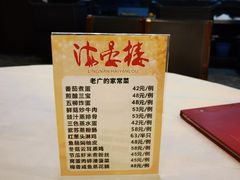 海晏楼
LINGNAN HAIYANLOU
老广的家常菜
番茄煮蛋 42元/例
煎酿三宝 48元/例
五柳炸蛋 48元/例
鲜菇炒牛肉 53元/例
豉汁蒸排骨 53元/例
三色蒸水蛋 42元/例
紫苏蒸粉肠 58元/例
红葱头淋鸡 63元/半只
鱼肠焗柚皮 48元/例
冬菇云耳蒸鸡 58元/例
节瓜虾米煮粉丝 48元/例
梅香咸鱼蒸花腩 48元/例